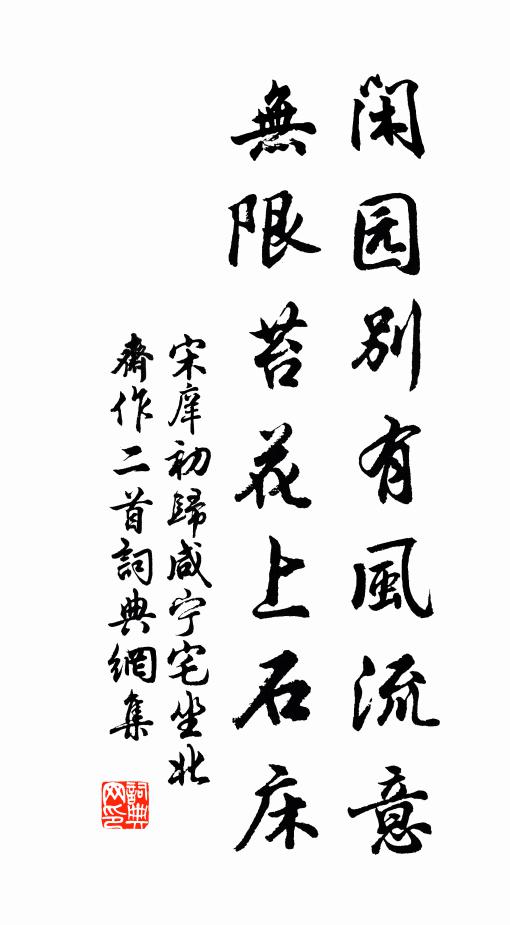 闲园别有風流意
無限苔花上石床
宋庠初歸咸宁宅坐北
齋作二首詞典網集
詞典网印